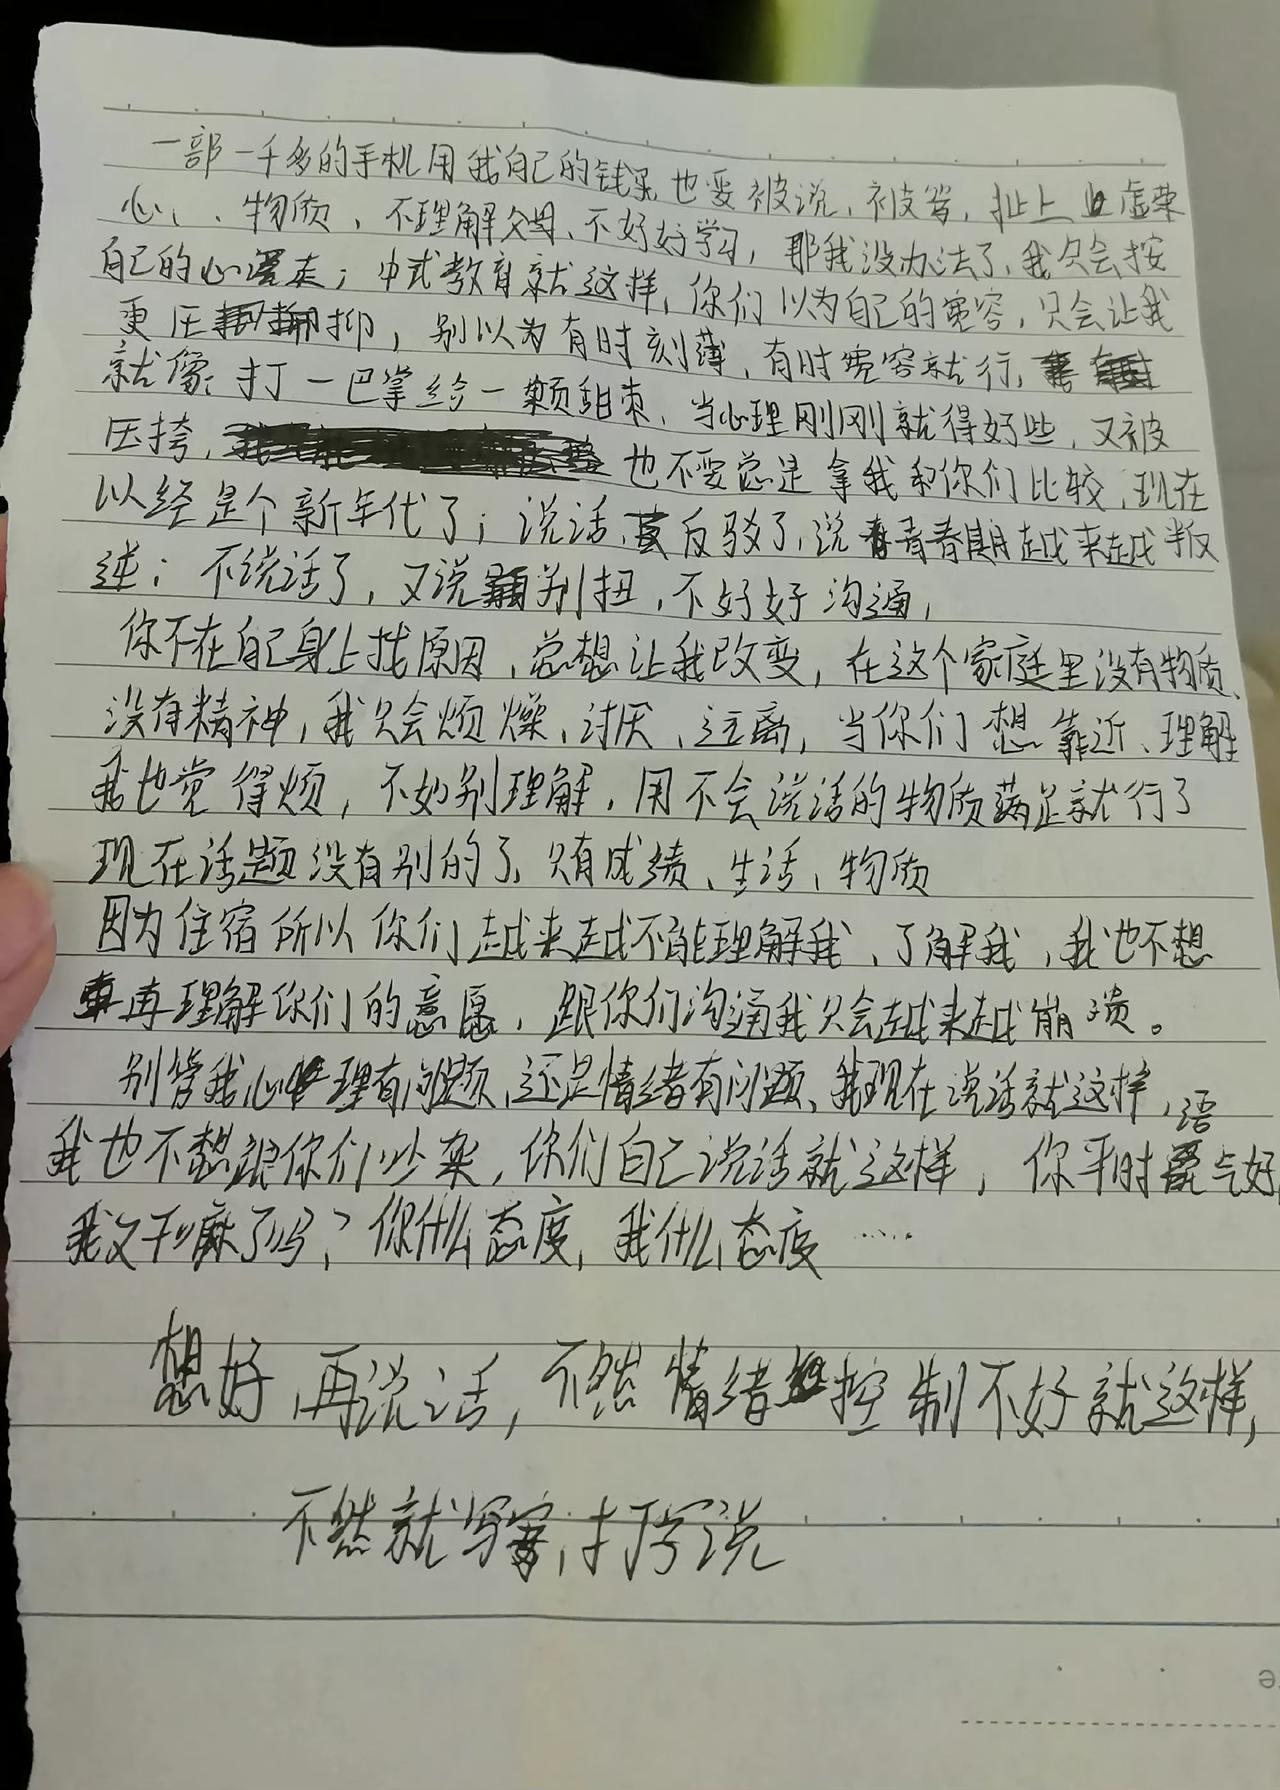 一部一千多的手机用我自己的钱买也要被说、被骂，扯上虚荣
心、物质、不理解父母、不好好学习，那我没办法了、我只会按
自己的心理走；中式教育就这样，你们以为自己的宽容，只会让我
更压抑，别以为有时刻薄、有时宽容就行、
就像：打一巴掌给一颗甜枣、当心理刚刚就得好些，又被
压挎，也不要总是拿我和你们比较、现在
以经是个新年代了；说话、反驳了、说青春期越来越叛
逆；不说话了，又说别扭，不好好沟通，
你不在自己身上找原因、总想让我改变，在这个家庭里没有物质、
没有精神，我只会烦燥、讨厌、远离，当你们想靠近、理解
我也觉得烦，不如别理解，用不会说话的物质满足就行了
现在话题没有别的了、只有成绩、生活、物质
因为住宿所以你们越来越不能理解我、了解我，我也不想
再理解你们的意愿，跟你们沟通我只会越来越崩溃。
别管我心理有问题、还是情绪有问题、我现在说话就这样，
我也不想跟你们吵架，你们自己说话就这样，你平时语气好
我又干嘛了吗？你什么态度，我什么态度……
想好再说话，不然情绪控制不好就这样，
不然就写字，打字说